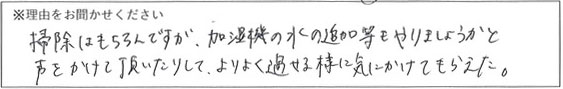 ※理由をお聞かせください
掃除はもちろんですが、加湿機の水の追加等もやりましょうかと
声をかけて頂いたりして、よりよく過せる様に気にかけてもらえた。